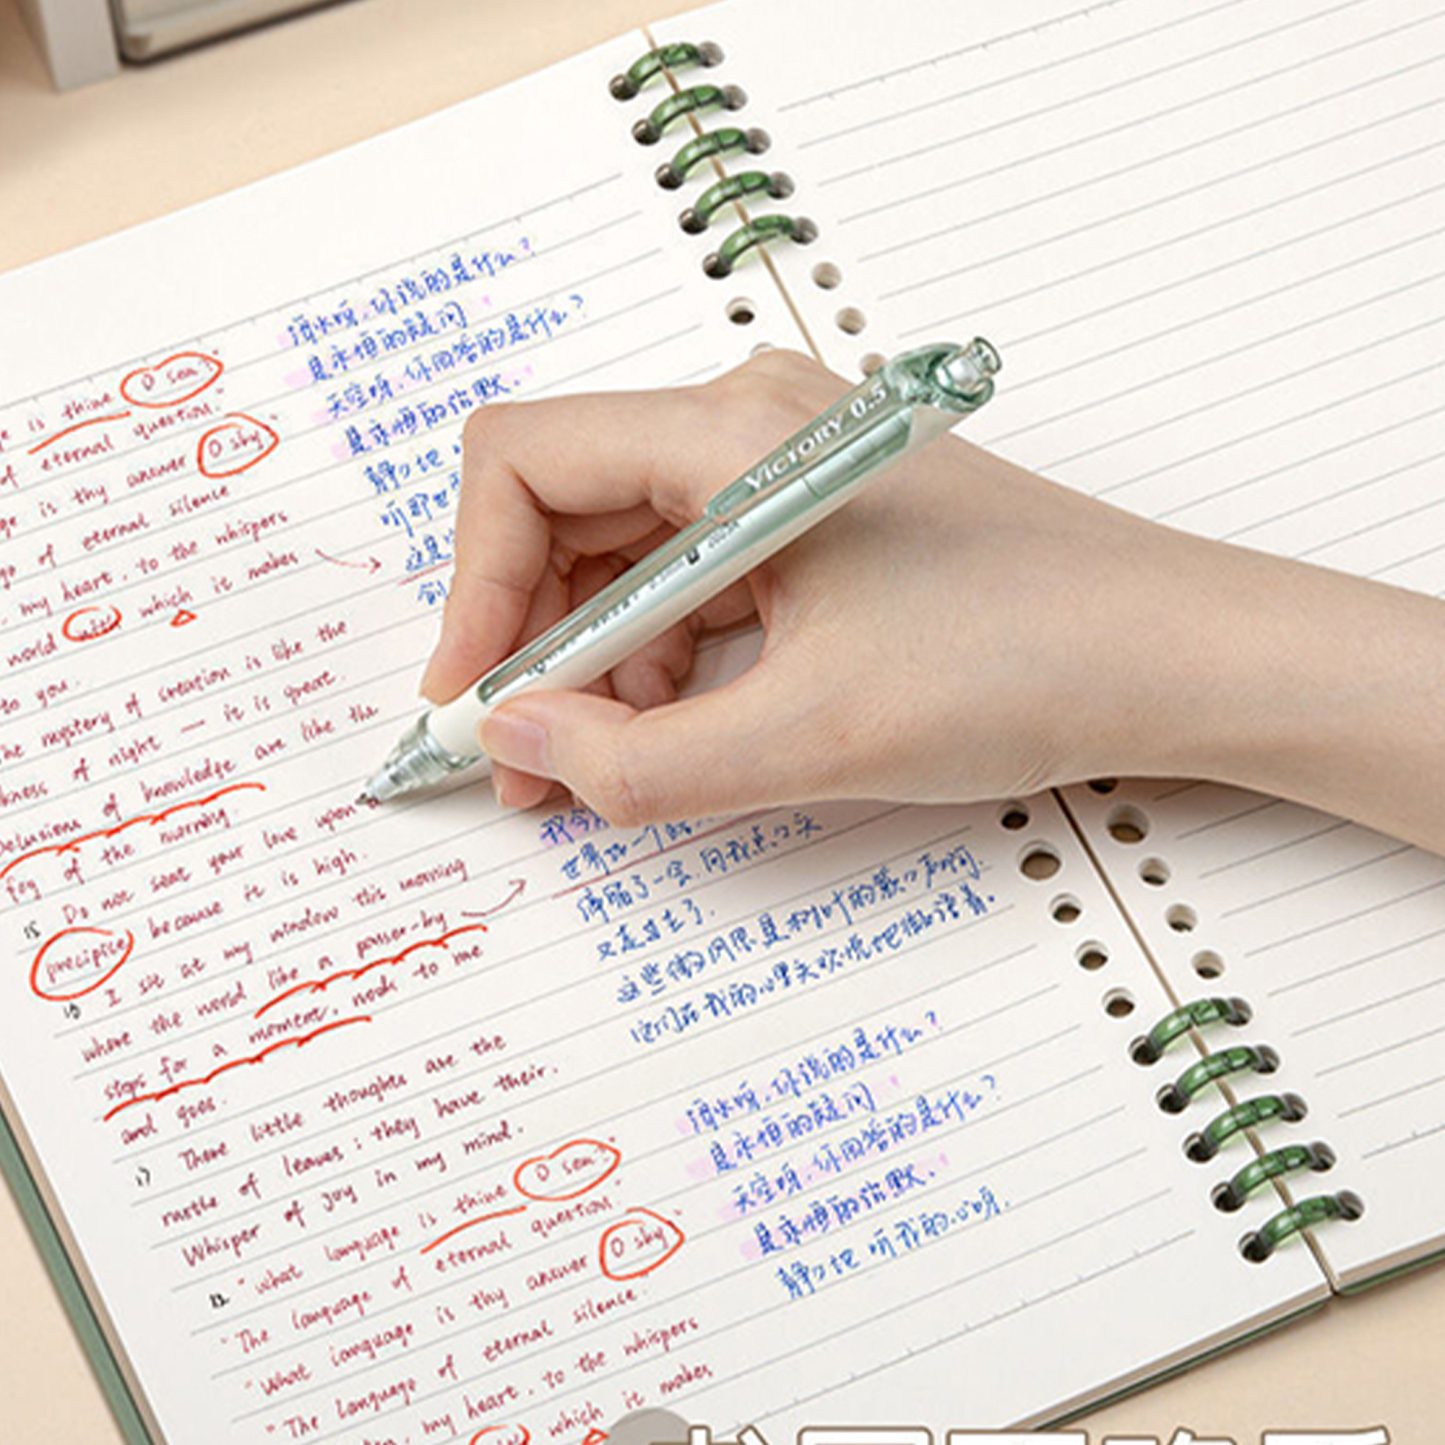 ge is thine O sea?"
of eternal question."
ge is thy answer O sky
go of eternal silence
, my heart, to the whispers
world with which it makes
to you.
he mystery of creation is like the
kness of night — it is great.
Delusions of knowledge are like the
fog of the morning.
15 Do not seat your love upon a
precipice because it is high.
16 I sit at my window this morning
where the world like a passer-by
stops for a moment, nods to me
and goes.
17 There little thoughts are the
rustle of leaves; they have their
Whisper of joy in my mind.
12 "what language is thine O sea?"
"The language of eternal question."
"What language is thy answer O sky
"The language of eternal silence.
, my heart, to the whispers
which it makes
海水呀,你说的是什么?
是永恒的疑问
天空呀,你回答的是什么?
是永恒的沉默.
静
听那世
这是
创
我今
世界如一个路
停留了一会,向我点点头
又走过去了.
这些微风呀是树叶的簌簌声啊.
它们在我的心里欢悦地微语着.
海水呀,你说的是什么?
是永恒的疑问
天空呀,你回答的是什么?
是永恒的沉默.
静静地听我的心呀.
VICTORY 0.5